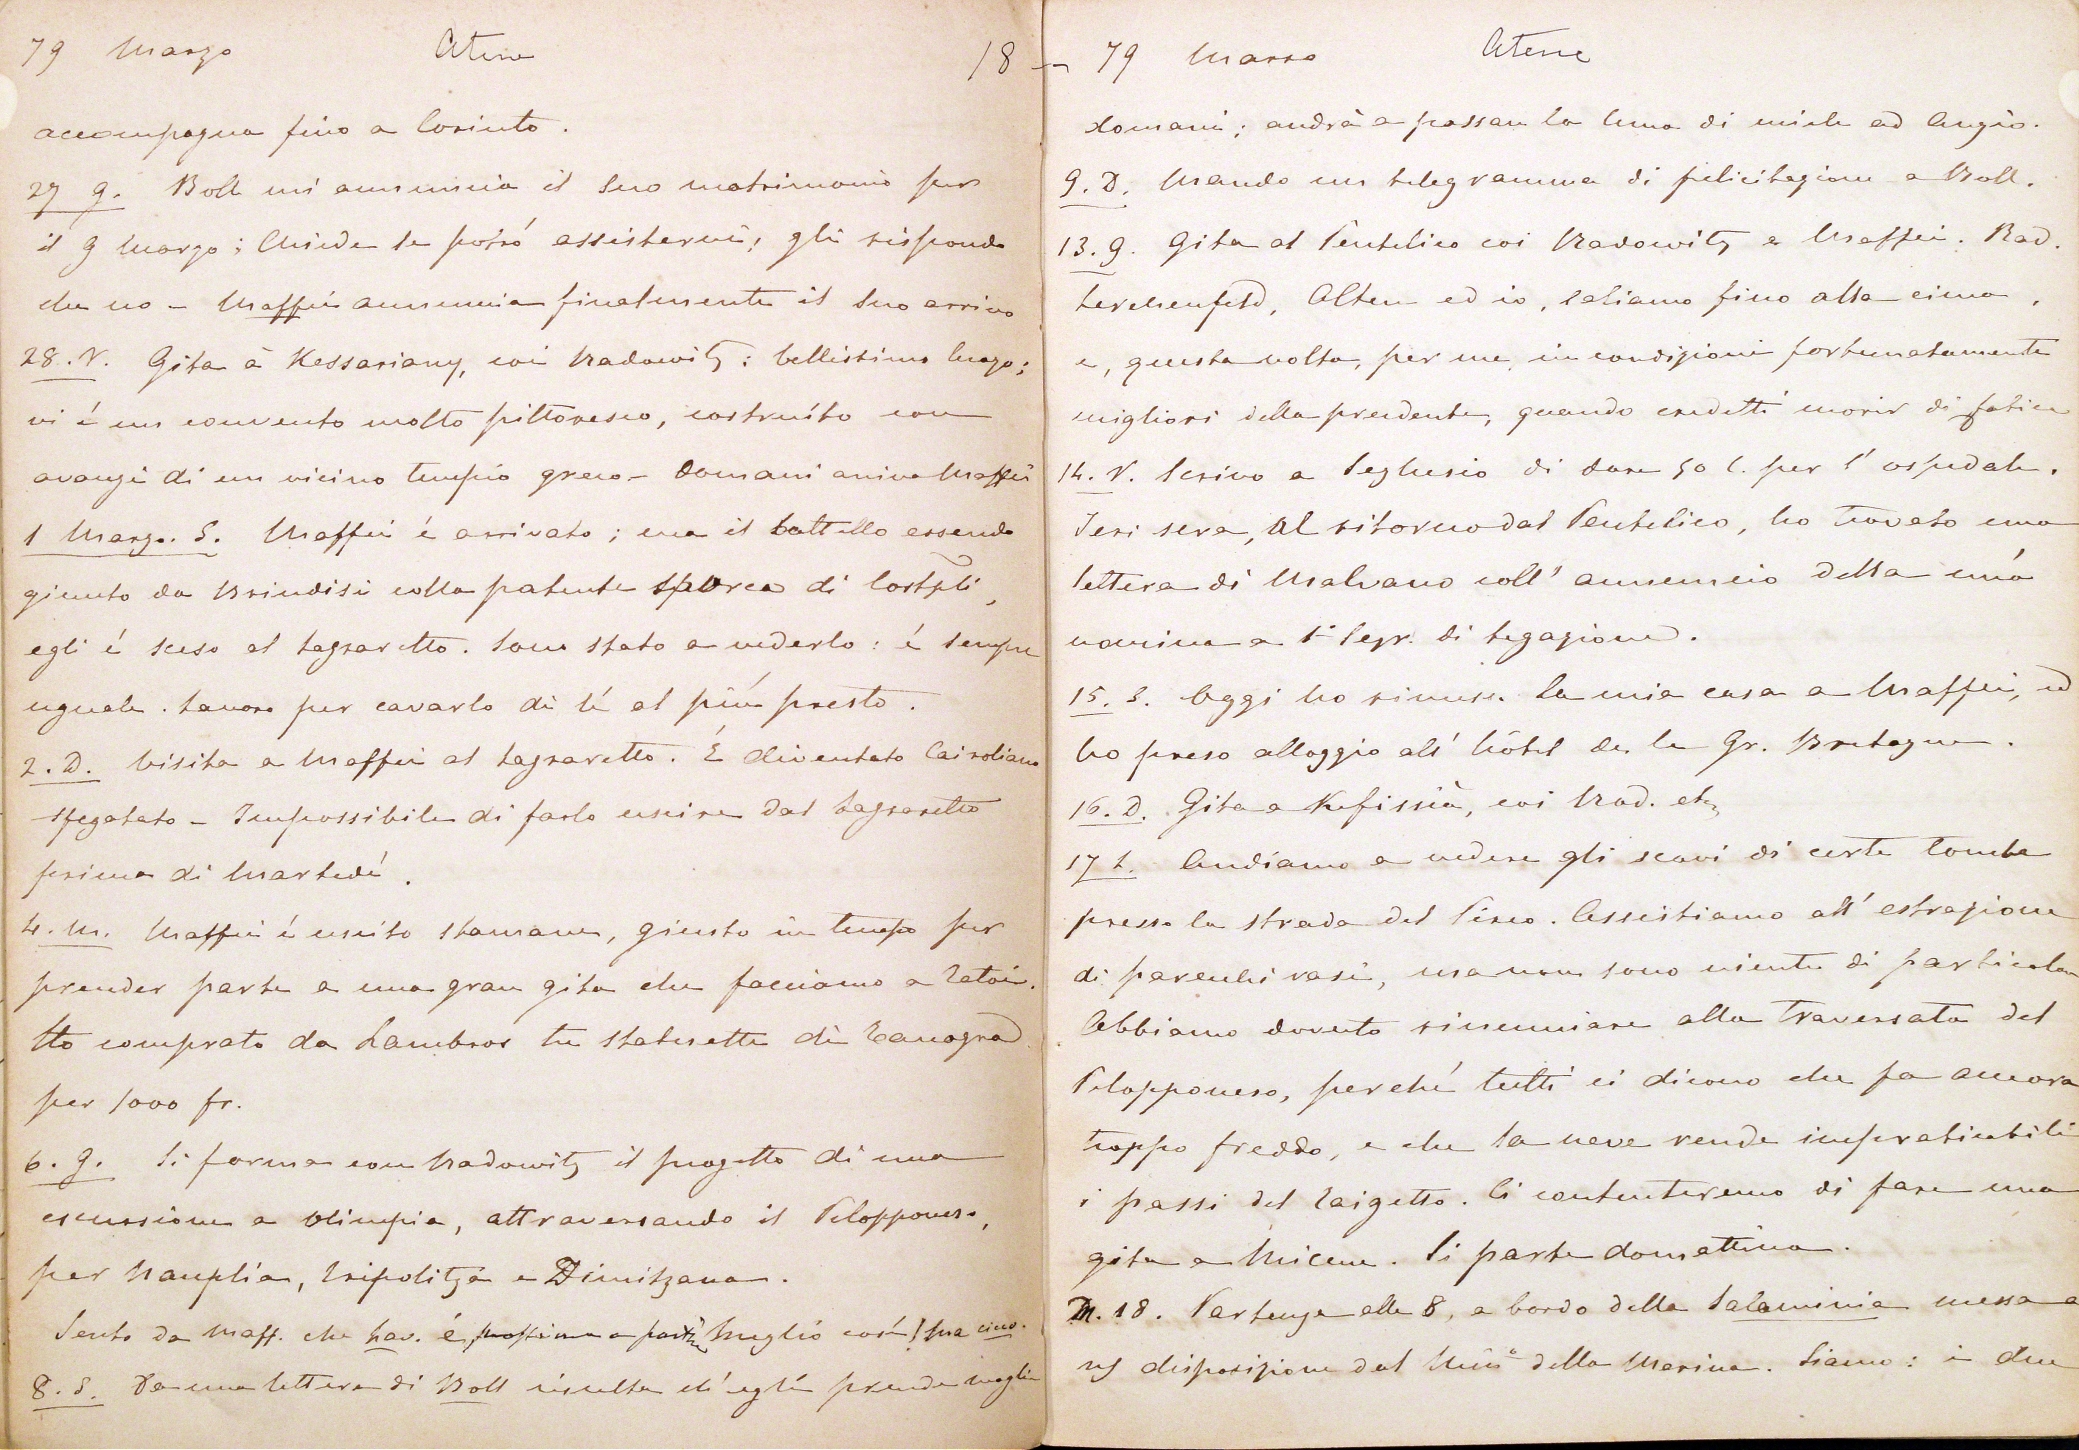 79 Marzo Atene 18
accompagna fino a Corinto.
27 G. Boll mi annuncia il suo matrimonio per
il 9 Marzo; Chiede se potró assistervi; gli rispondo
che no – Maffei annuncia finalmente il suo arrivo
28. V. Gita à Kessariany, coi Radowitz: bellissimo luogo;
vi é un convento molto pittoresco, costruíto con
avanzi di un vicino tempio greco – Domani arriva Maffei
1 Marzo. S. Maffei é arrivato; ma il battello essendo
giunto da Brindisi colla patente sporca di Costpli,
egli é sceso al lazzaretto. Sono stato a vederlo: é sempre
uguale. Lavoro per cavarlo di lí al piú presto.
2. D. Visita a Maffei al lazzaretto. É diventato Cairoliano
sfegatato – Impossibile di farlo uscire dal lazzaretto
prima di Martedí.
4. M. Maffei é uscito stamane, giusto in tempo per
prender parte a una gran gita che facciamo a Tatoi.
Ho comprato da Lambros tre statuette di Tanagra
per 1000 fr.
6. G. Si forma con Radowitz il progetto di una
escursione a Olimpia, attraversando il Peloponneso,
per Nauplia, Tripolitza e Dimitzana.
Sento da Maff. che Lav. é a partire Meglio cosí! Ma
8. S. Da una lettera di Boll risulta ch'egli prende moglie
79 Marzo Atene
domani; andrà a passare la luna di miele ad Angio.
9. D. Mando un telegramma di felicitazione a Boll.
13. G. Gita al Pentelico coi Radowitz e Maffei. Rad.
Lerchenfeld, Alten ed io, saliamo fino alla cima,
e, questa volta, per me, in condizioni fortunatamente
migliori della precedente, quando credetti morir di fatica
14. V. Scrivo a Seglusio di dare 50 l. per l'ospedale.
Ieri sera, al ritorno dal Pentelico, ho trovato una
lettera di Malvano coll'annuncio della mia
nomina a 1° Segr. di Legazione.
15. S. Oggi ho rimesso la mia casa a Maffei, ed
ho preso alloggio all'hôtel de la Gr. Bretagne.
16. D. Gita a Kefissià, coi Rad. etc
17 L. Andiamo a vedere gli scavi di certe tombe
presso la strada del Pireo. Assistiamo all'estrazione
di parecchi vasi, ma non sono niente di particolare
Abbiamo dovuto rinunciare alla traversata del
Peloponneso, perché tutti ci dicono che fa ancora
troppo freddo, e che la neve rende impraticabili
i passi del Taigetto. Ci contenteremo di fare una
gita a Micene. Si parte domattina.
M. 18. Partenza alle 8, a bordo della Salaminia messa a
ns disposizione dal Mino della Marina. Siamo: i due